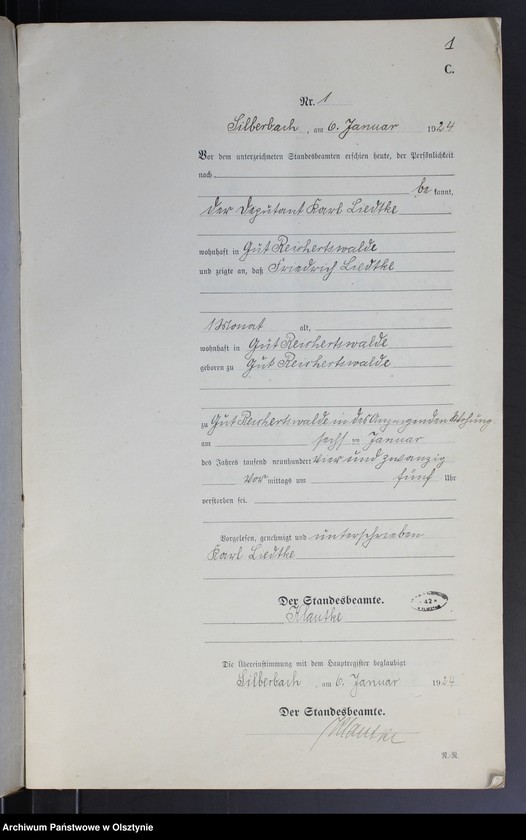 1
C.
Nr. 1
Silberbach, am 6. Januar 1924
Vor dem unterzeichneten Standesbeamten erschien heute, der Persönlichkeit
nach
be kannt,
der Deputant Karl Liedtke
wohnhaft in Gut Reichertswalde
und zeigte an, daß Friedrich Liedtke
1 Monat alt,
wohnhaft in Gut Reichertswalde
geboren zu Gut Reichertswalde
zu Gut Reichertswalde in des Anzeigenden Wohnung
am sechs ten Januar
des Jahres tausend neunhundert vier und zwanzig
vor mittags um fünf Uhr
verstorben sei.
Vorgelesen, genehmigt und unterschrieben
Karl Liedtke
Der Standesbeamte.
Klautke
42
Die Übereinstimmung mit dem Hauptregister beglaubigt
Silberbach, am 6. Januar 1924
Der Standesbeamte.
Klautke
N.-R.
Archiwum Państwowe w Olsztynie